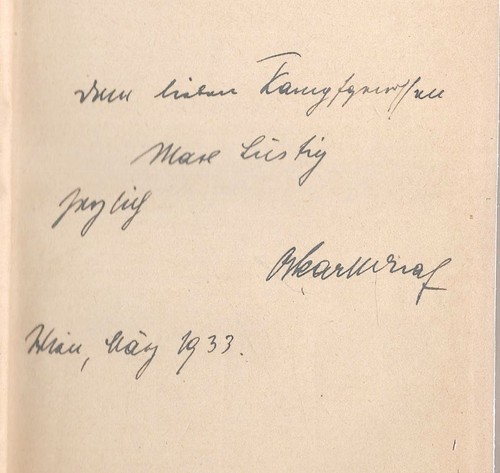 Dem lieben Kampfgenossen
Max Lustig
herzlich
Oskar M Graf
Wien, März 1933.